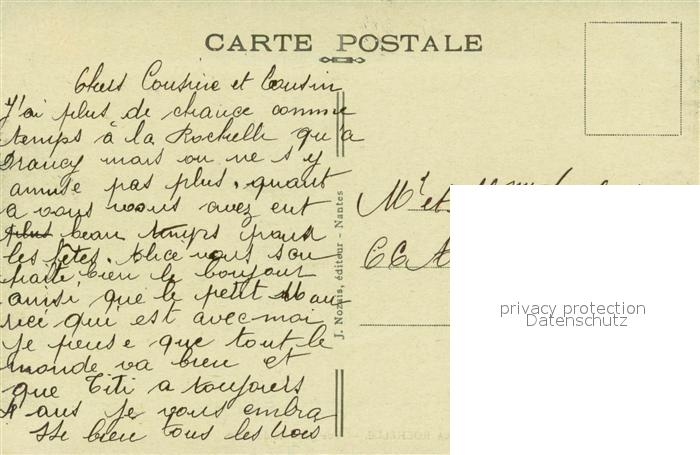 CARTE POSTALE
Chers Cousine et Cousin
J'ai plus de chance comme
temps à la Rochelle qu'a
Drancy mais on ne s'y
amuse pas plus. quant
a vous vous avez eut
plus beau temps pour
les fêtes. Alice vous sou
haite bien le bonjour
ainsi que le petit Mau
rice qui est avec moi
je pense que tout le
monde va bien et
que Titi a toujours
4 ans je vous embra
sse bien tous les trois
J. Nozais, éditeur - Nantes
Mr et
privacy protection
Datenschutz